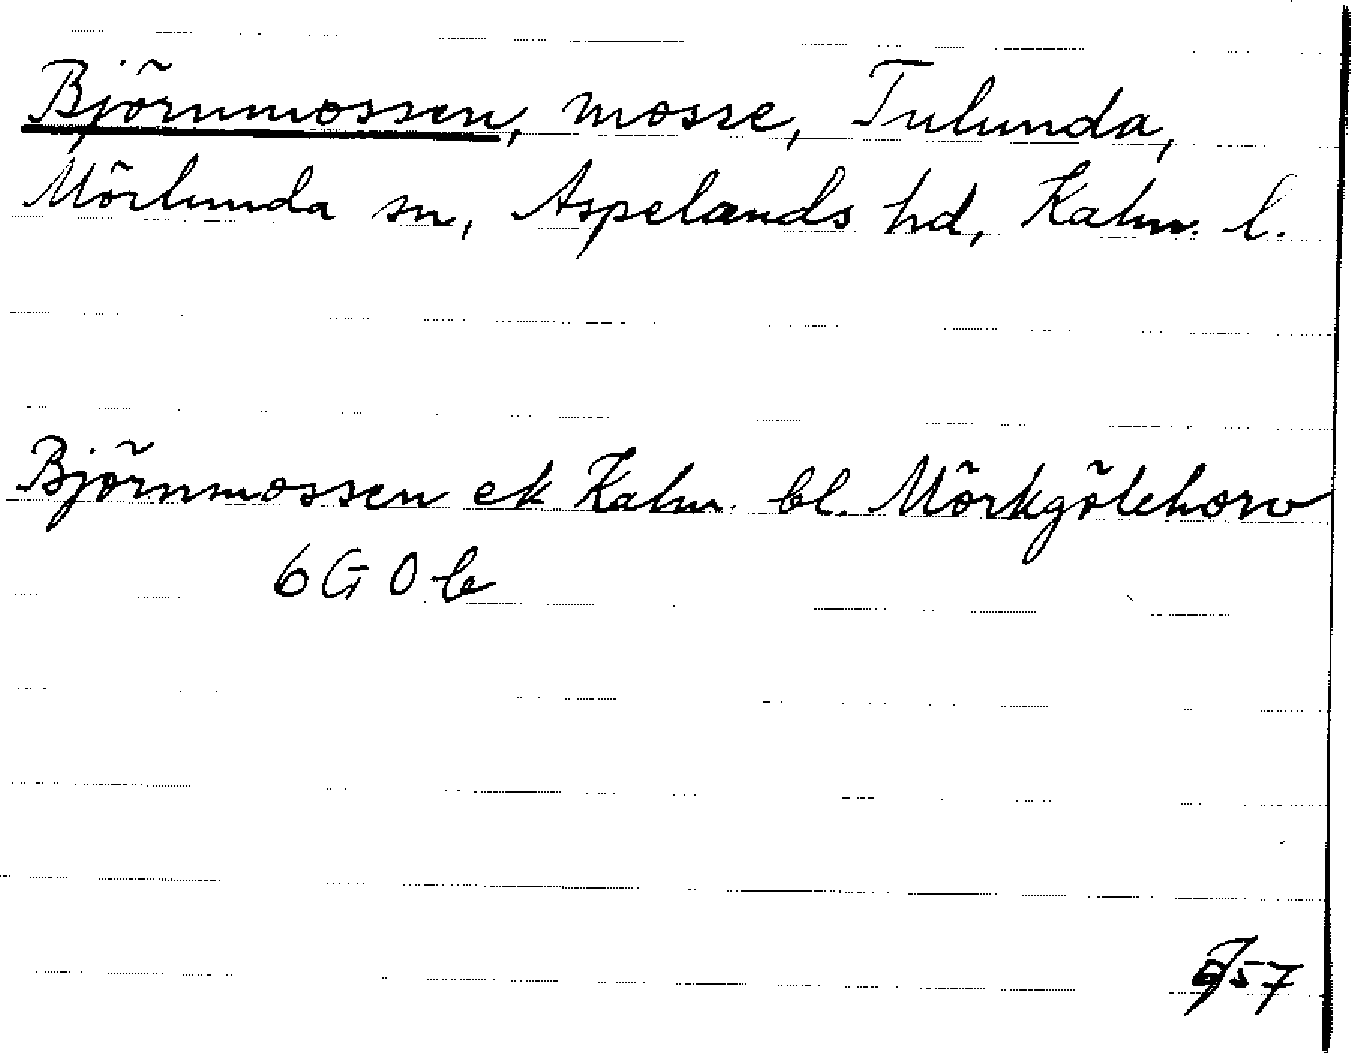 Björnmossen, mosse, Tulunda,
Mörlunda sn, Aspelands hd, Kalm. l.
Björnmossen ek Kalm. bl. Mörkgölehorv
6G0b